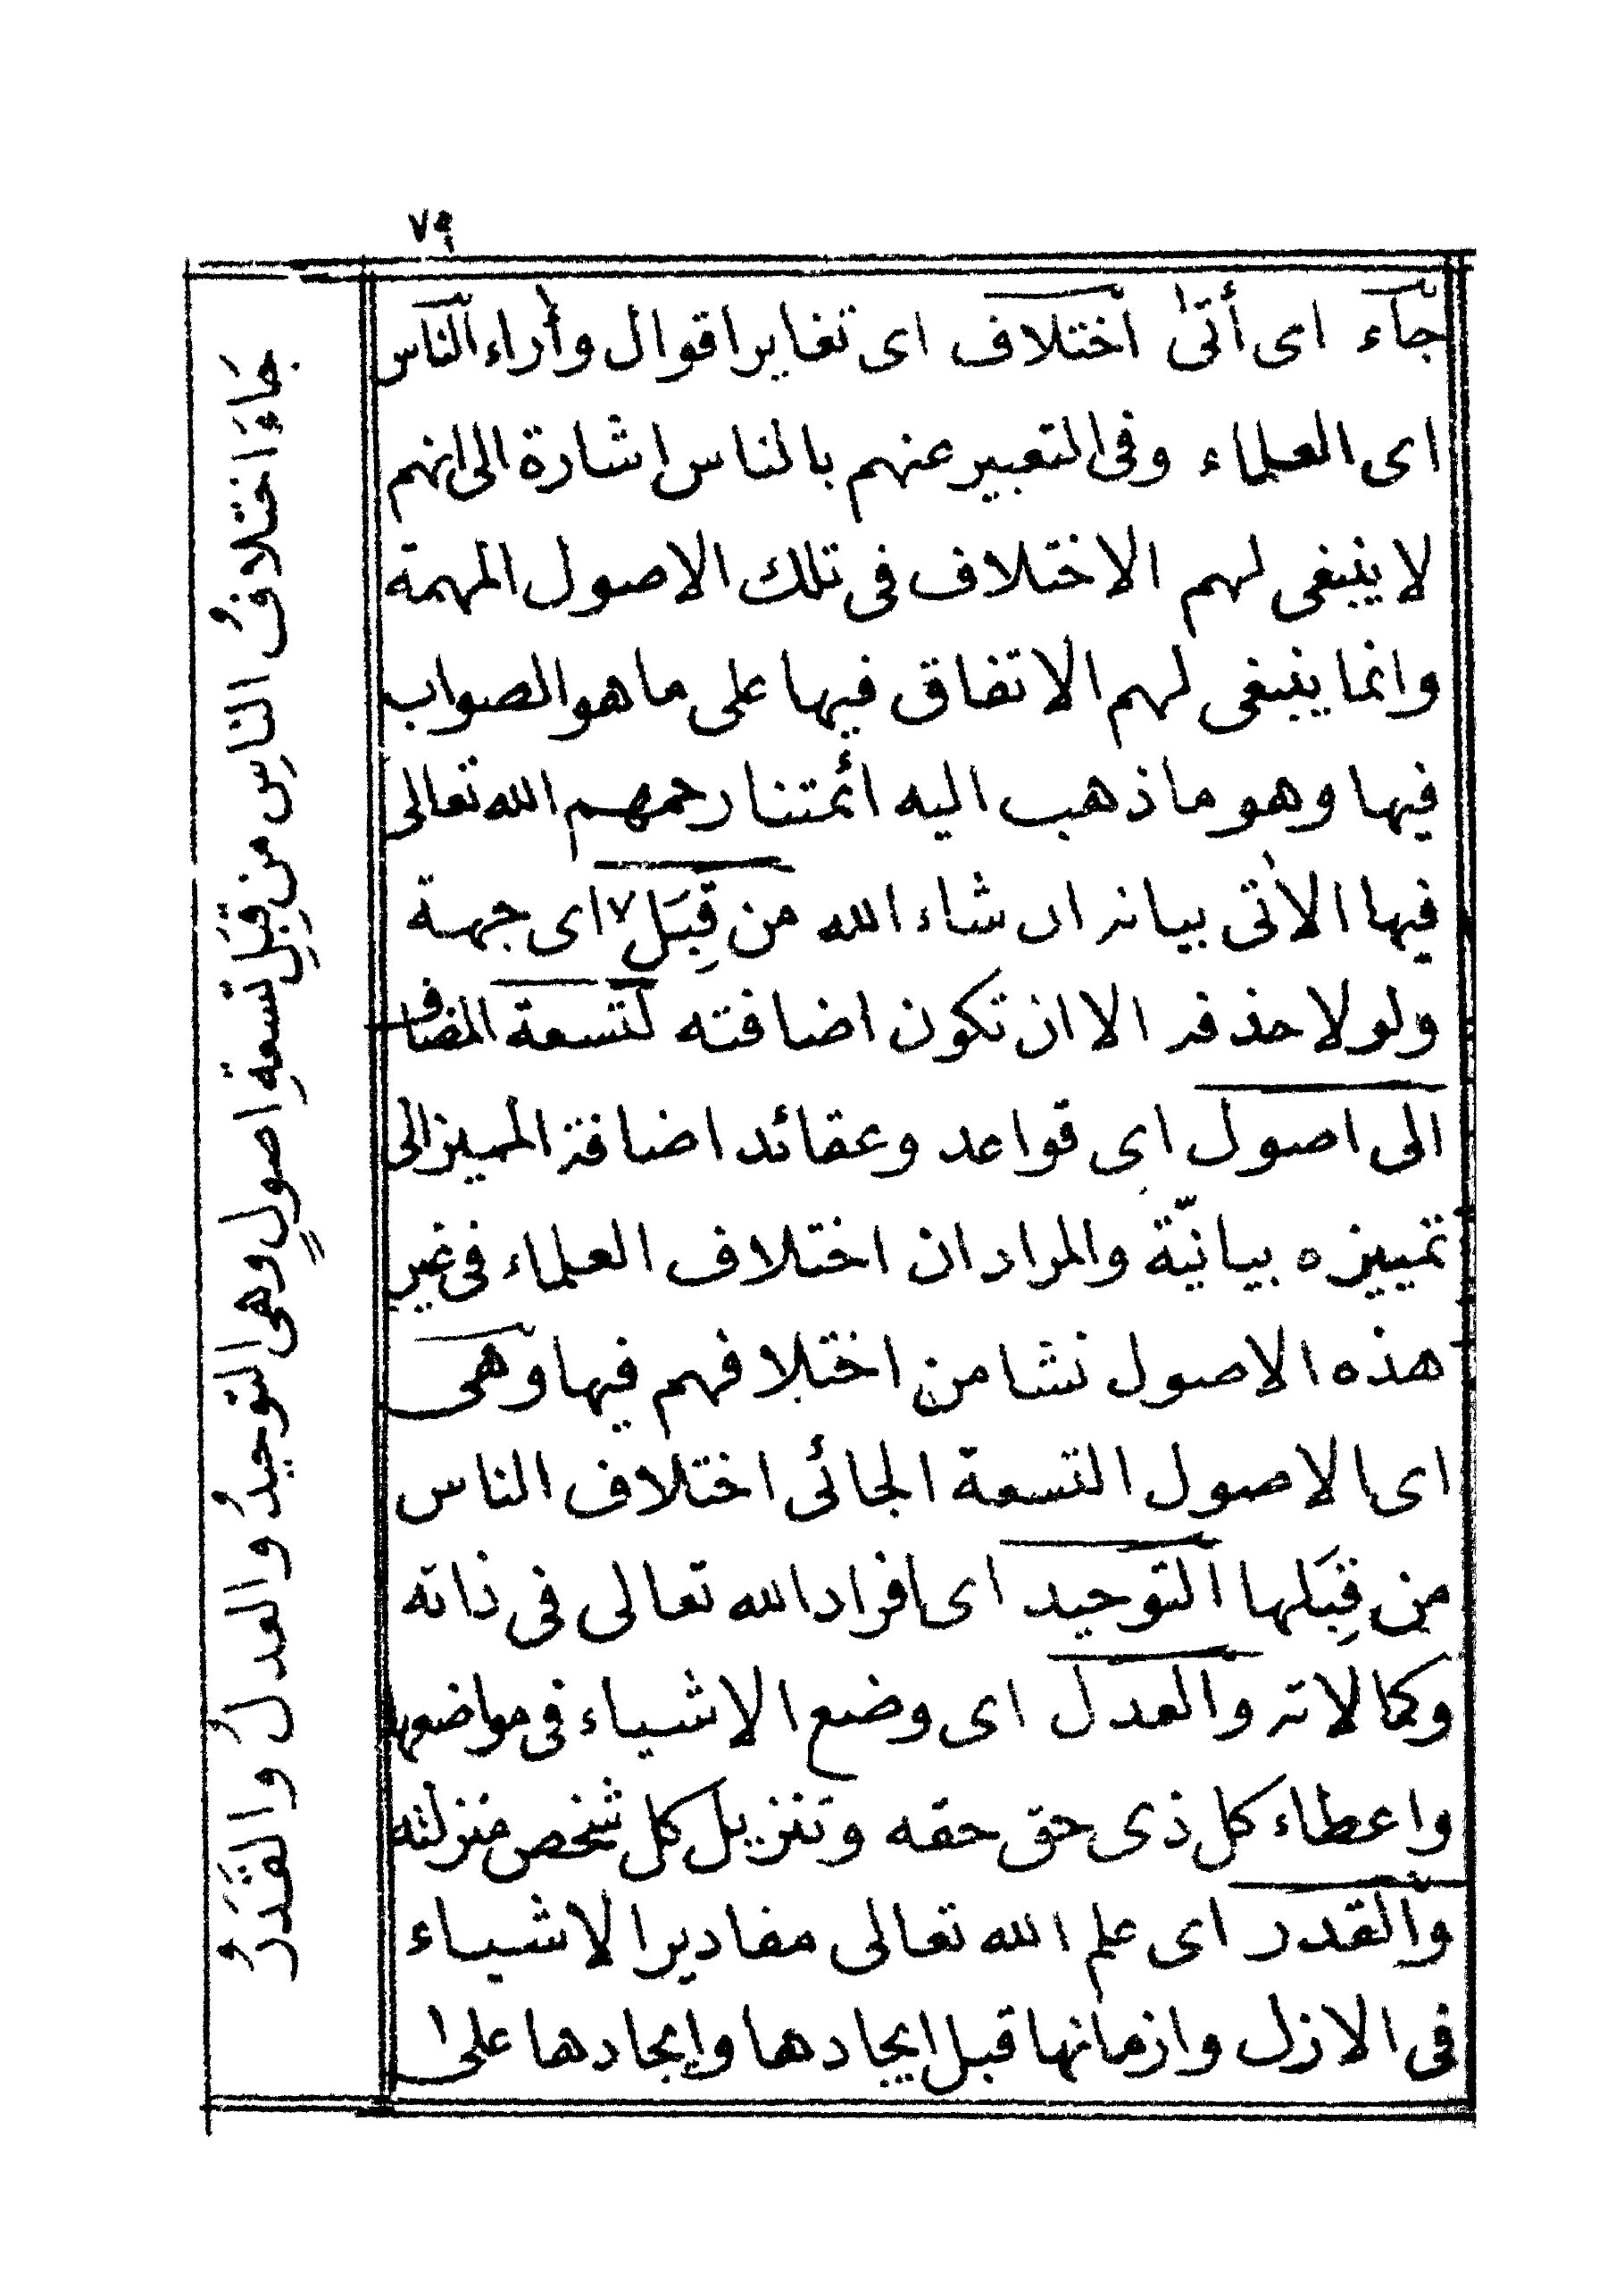 ٧٩
جآء اى أتىٰ اختلاف اى تغاير اقوال وأٰراء الناس
اى العلماء وفى التعبير عنهم بالناس اشارة الى انهم
لا ينبغى لهم الاختلاف فى تلك الاصول المهمة
وانما ينبغى لهم الاتفاق فيها على ما هو الصواب
فيها وهو ما ذهب اليه ائمتنا رحمهم الله تعالى
فيها الأتى بيانه ان شاء الله من قِبَل ٧ اى جهة
ولو لا حذفه الا ان تكون اضافته لتسعة المضاف
الى اصول اى قواعد وعقائد اضافة المميز الى
تمييزه بيانيّة والمراد ان اختلاف العلماء فى غير
هذه الاصول نشا من اختلافهم فيها وهى
اى الاصول التسعة الجائى اختلاف الناس
من قِبَلها التوحيد اى افراد الله تعالى فى ذاته
وكمالاته والعدل اى وضع الاشياء فى مواضعها
واعطاء كل ذى حق حقه وتنزيل كل شخص منزلته
والقدر اى علم الله تعالى مقادير الاشياء
فى الازل وازمانها قبل ايجادها وايجادها على ا
جاءَ اختلافُ الناسِ من قِبَلِ تسعةِ اصولٍ وهى التوحيدُ والعدلُ والقَدَرُ